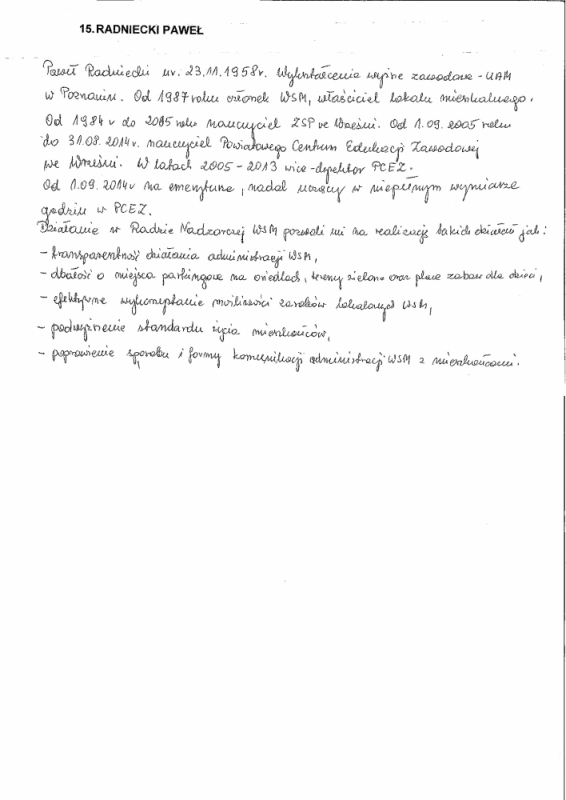 15. RADNIECKI PAWEŁ
Paweł Radniecki ur. 23.11.1958r. Wykształcenie wyższe zawodowe - UAM
w Poznaniu. Od 1987 roku członek WSM, właściciel lokalu mieszkalnego.
Od 1984 r do 2005 roku nauczyciel ZSP we Wrześni. Od 1.09.2005 roku
do 31.08.2014r. nauczyciel Powiatowego Centrum Edukacji Zawodowej
we Wrześni. W latach 2005 - 2013 vice-dyrektor PCEZ.
Od 1.09.2014r na emeryturze, nadal uczący w niepełnym wymiarze
godzin w PCEZ.
Działanie w Radzie Nadzorczej WSM pozwoli mi na realizację takich działań jak:
- transparentność działania administracji WSM,
- dbałość o miejsca parkingowe na osiedlach, tereny zielone oraz place zabaw dla dzieci,
- efektywne wykorzystanie możliwości zasobów lokalowych WSM,
- podwyższenie standardu życia mieszkańców,
- poprawienie sposobu i formy komunikacji administracji WSM z mieszkańcami.